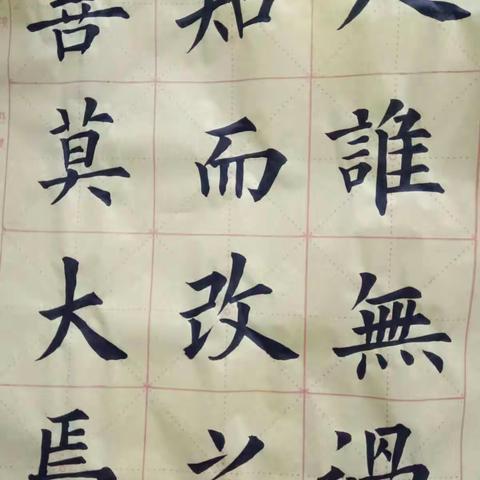 人誰無過
知而改之
善莫大焉